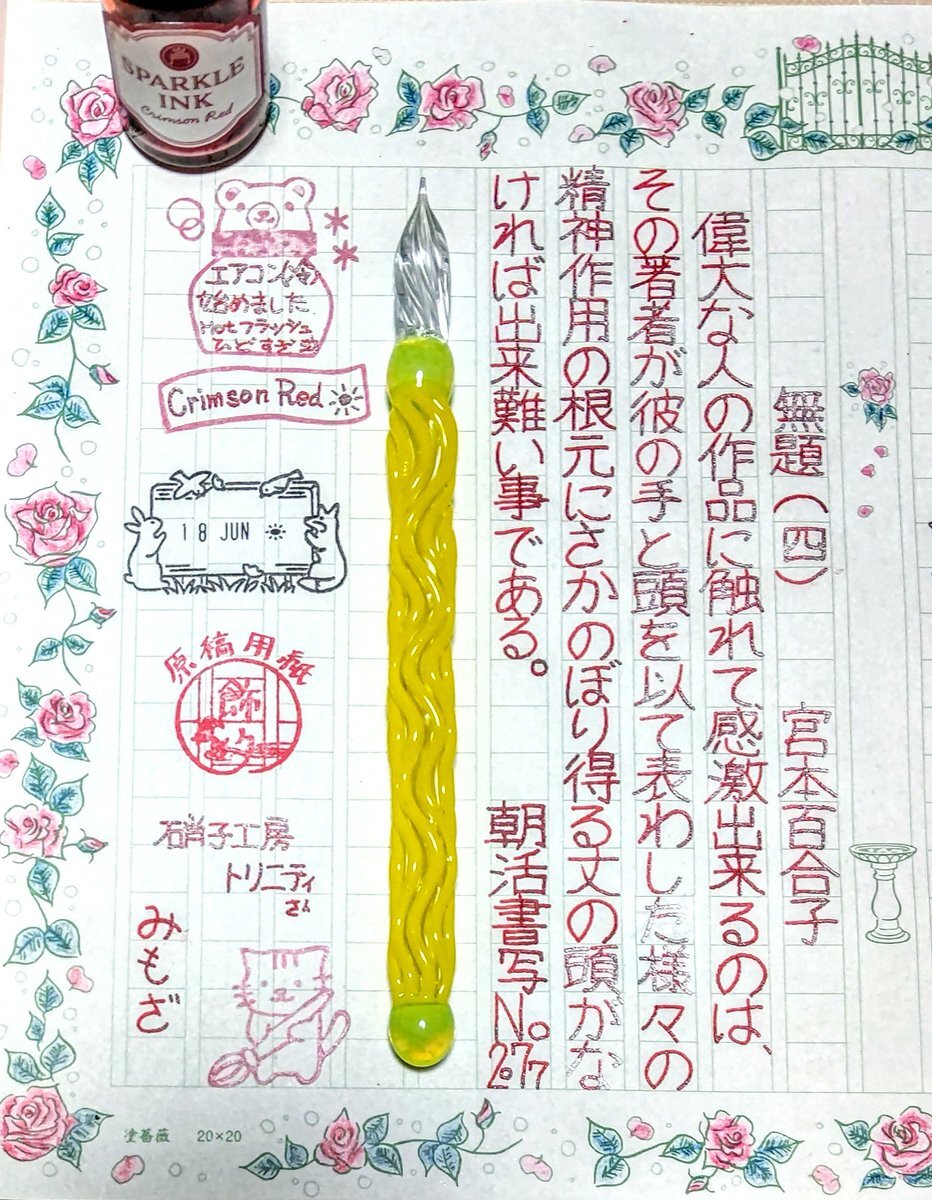 SPARKLE
INK
Crimson Red
無題(四) 宮本百合子
偉大な人の作品に触れて感激出来るのは、
その著者が彼の手と頭を以て表わした様々の
精神作用の根元にさかのぼり得る丈の頭がな
ければ出来難い事である。
朝活書写No.
エアコン(冷)
始めました
Hotフラッシュ
ひどすぎ
Crimson Red
18 JUN
原稿用紙
飾り
硝子工房
トリニティ
さん
みもざ
塗薔薇 20×20